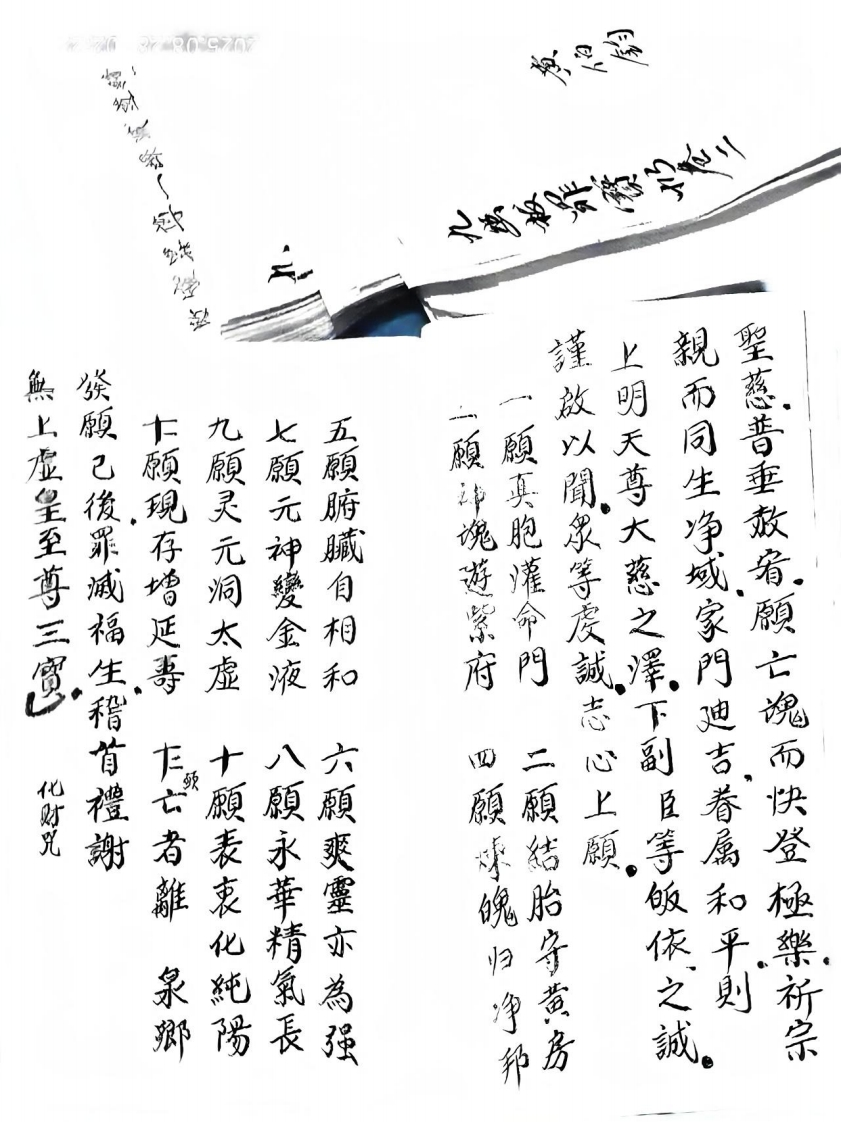 九幽拔罪
聖慈普垂赦宥願亡魂而快登極樂祈宗
親而同生净域家門廸吉眷属和平則
上明天尊大慈之澤下副臣等皈依之誠
謹啟以聞眾等虔誠志心上願
一願真胞灌命門 二願結胎守黃房
三願神魂遊紫府 四願煉魄归净邦
五願腑臟自相和 六願爽靈亦為强
七願元神變金液 八願永華精氣長
九願灵元洞太虛 十願表裏化純陽
十一願現存增延壽 十二願亡者離泉鄉
發願已後罪滅福生稽首禮謝
無上虛皇至尊三寶
化财咒